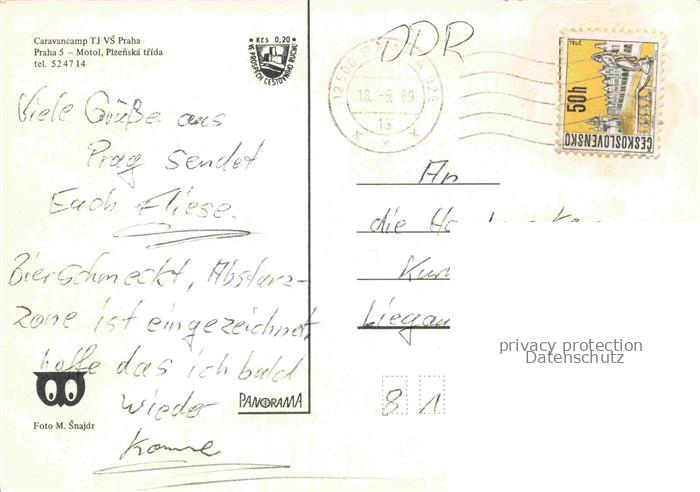 Caravancamp TJ VŠ Praha
Praha 5 – Motol, Plzeňská třída
tel. 524714
Kčs 0,20
VE PROSPĚCH CESTOVNÍHO RUCHU
Viele Grüße aus
Prag sendet
Euch Fliese.
Bier schmeckt, Absturz-
zone ist eingezeichnet
hoffe das ich bald
wieder
komme
Foto M. Šnajdr
PANORAMA
DDR
18.-5.89
13
TELČ
50h
ČESKOSLOVENSKO
An
die
Liegau
privacy protection
Datenschutz
8 1